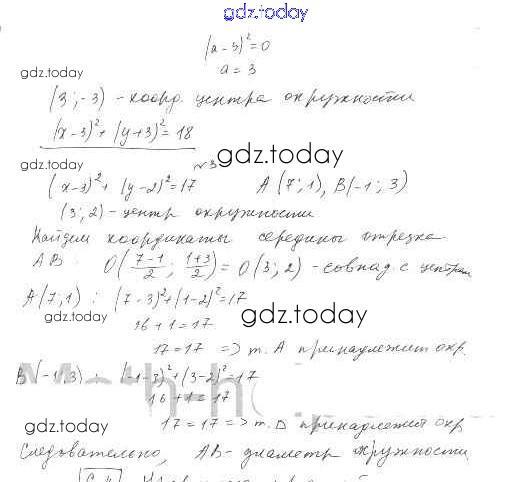 gdz.today
(a-3)²=0
gdz.today
a = 3
(3;-3) - коорд. центра окружности
(x-3)²+(y+3)²=18
gdz.today
№3
gdz.today
(x-3)²+(y-2)²=17 A(7;1), B(-1;3)
(3;2) - центр окружности
Найдем координаты середины отрезка
AB: O(7-1/2; 1+3/2) = O(3;2) - совпад. с центром
A(7;1): (7-3)²+(1-2)²=17
gdz.today
gdz.today
16+1=17
17=17 => т. A принадлежит окр.
B(-1;3): (-1-3)²+(3-2)²=17
16+1=17
gdz.today
17=17 => т. принадлежит окр
Следовательно, AB - диаметр окружности